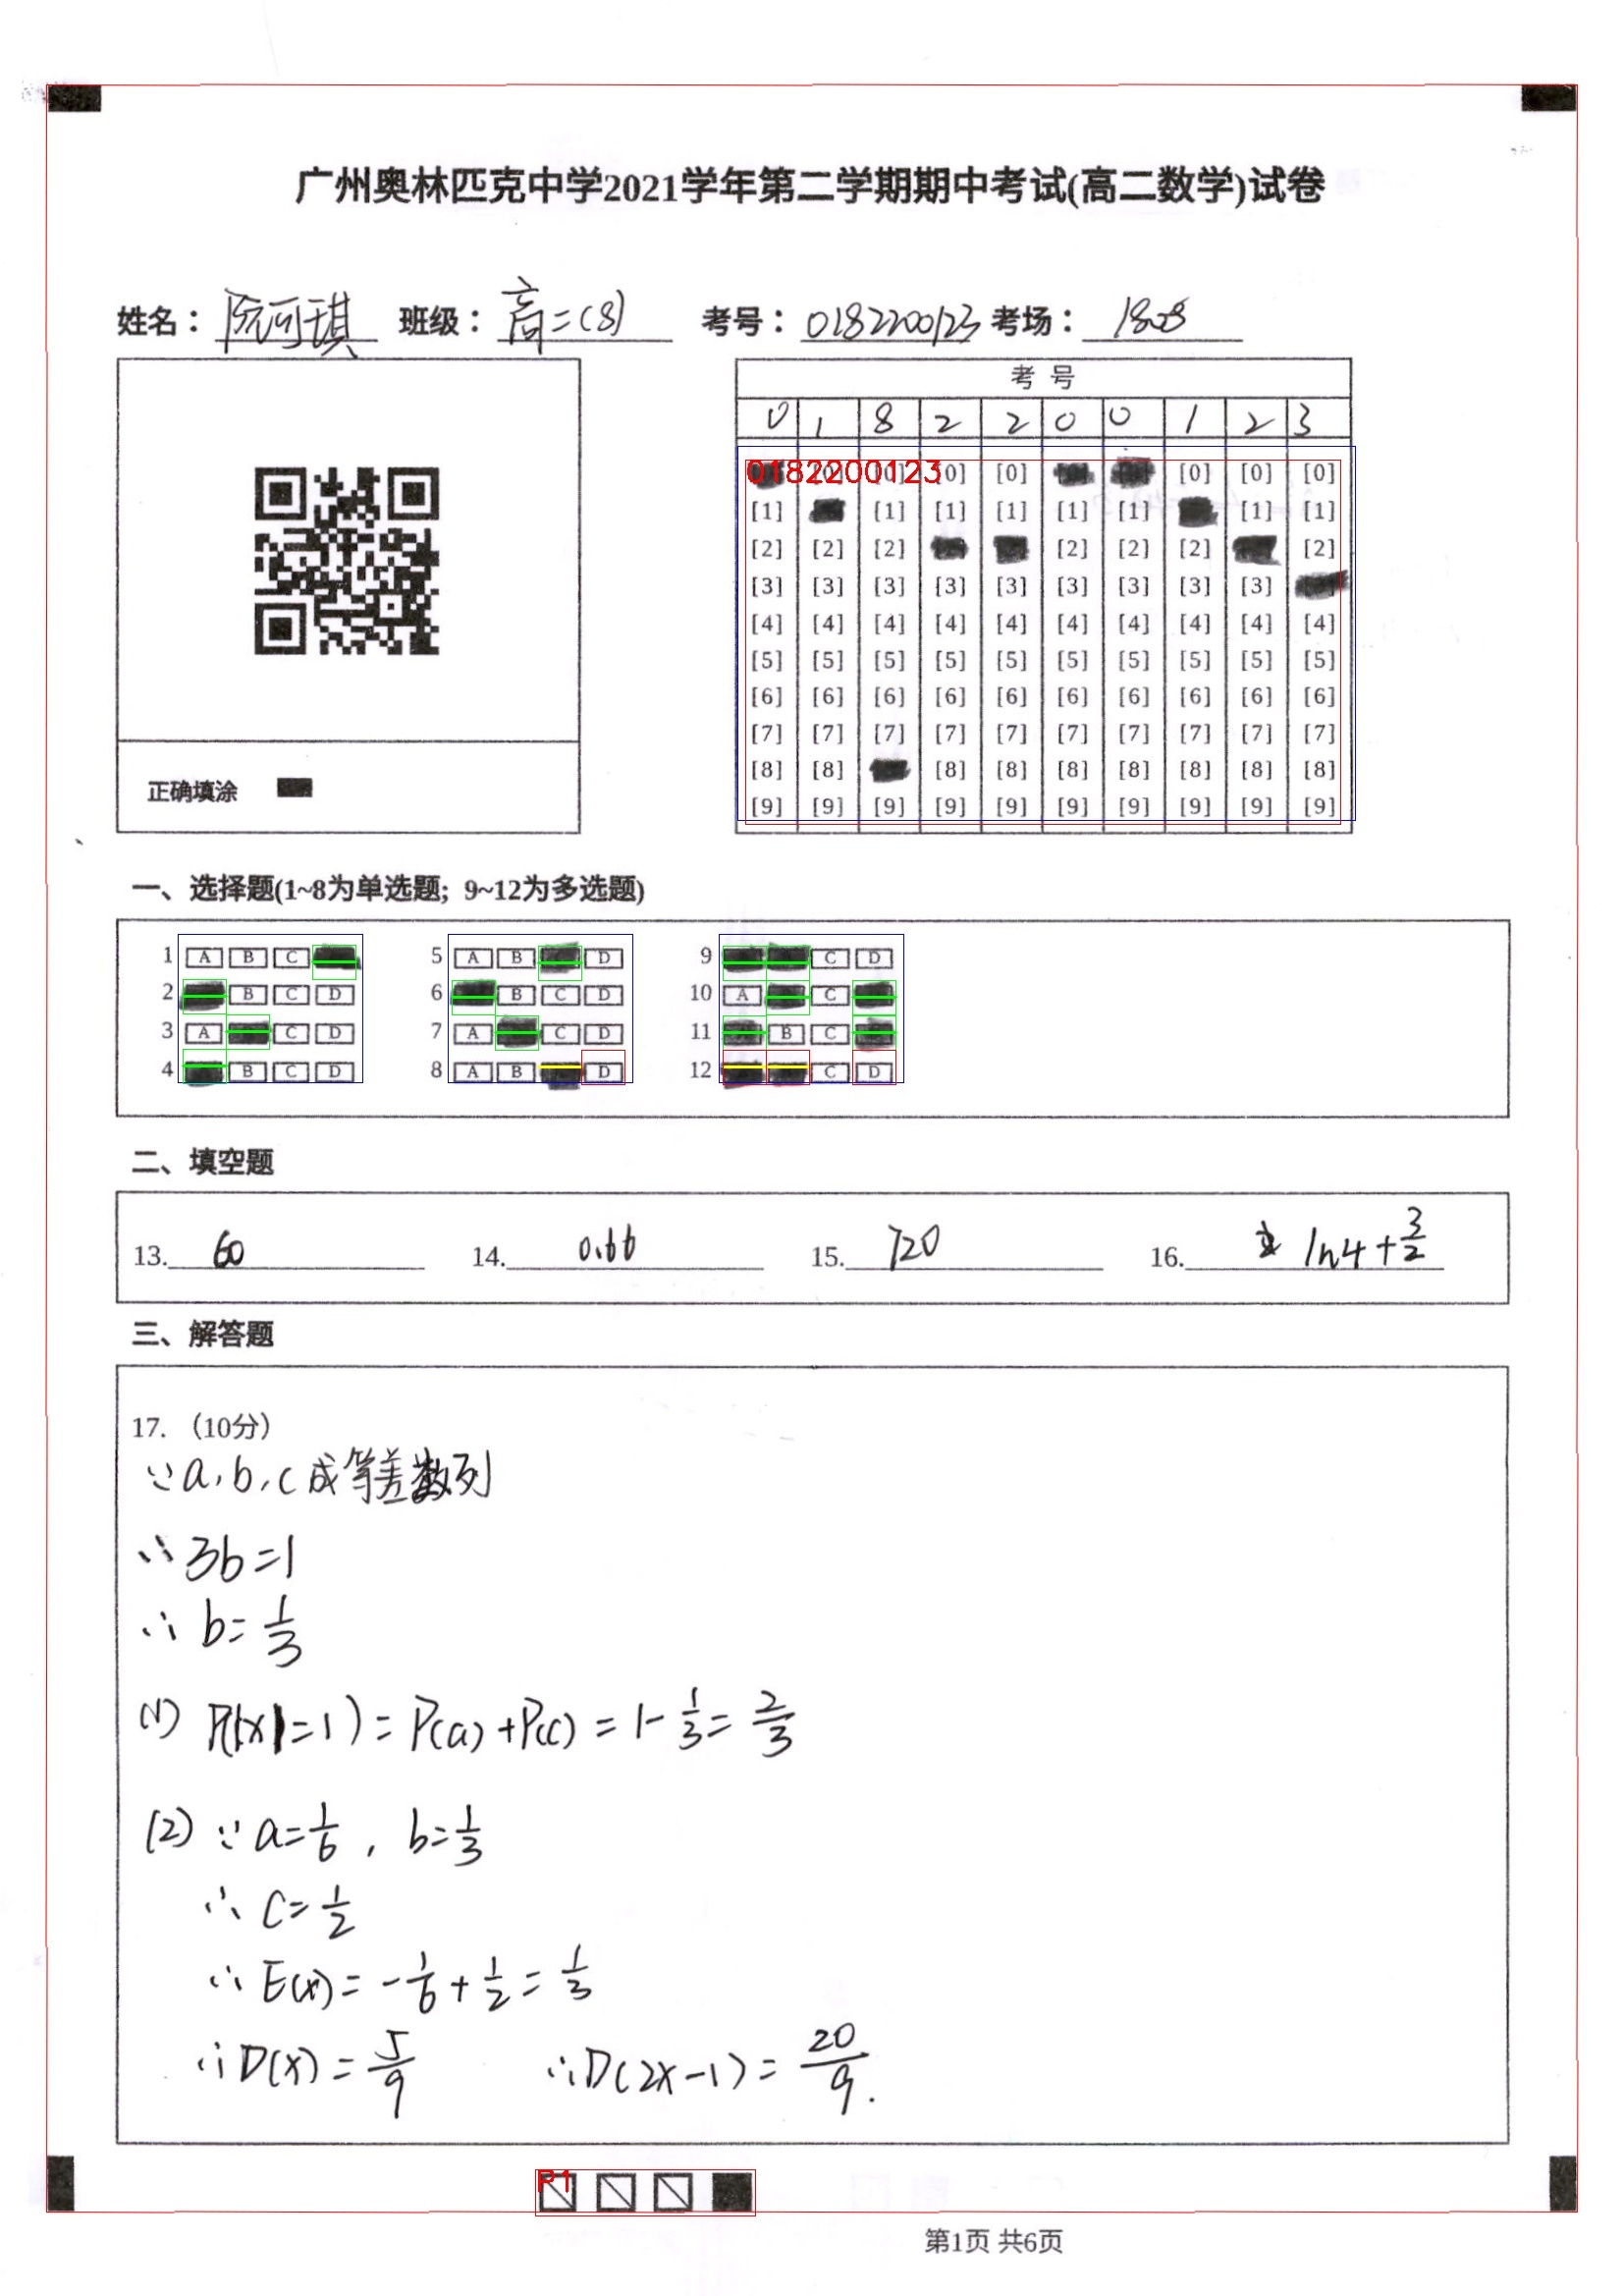 广州奥林匹克中学2021学年第二学期期中考试(高二数学)试卷
姓名： 阮可琪 班级： 高二(8) 考号： 0182200123 考场： 1808
考 号
0 1 8 2 2 0 0 1 2 3
0182200123 [0] [0] [0] [0] [0]
[1] [1] [1] [1] [1] [1] [1] [1]
[2] [2] [2] [2] [2] [2] [2]
[3] [3] [3] [3] [3] [3] [3] [3] [3]
[4] [4] [4] [4] [4] [4] [4] [4] [4] [4]
[5] [5] [5] [5] [5] [5] [5] [5] [5] [5]
[6] [6] [6] [6] [6] [6] [6] [6] [6] [6]
[7] [7] [7] [7] [7] [7] [7] [7] [7] [7]
[8] [8] [8] [8] [8] [8] [8] [8] [8]
[9] [9] [9] [9] [9] [9] [9] [9] [9] [9]
正确填涂
一、选择题(1~8为单选题; 9~12为多选题)
1 A B C 5 A B C D 9 C D
2 B C D 6 B C D 10 A C
3 A C D 7 A C D 11 B C
4 B C D 8 A B D 12 C D
二、填空题
13. 60 14. 0.66 15. 720 16. ln4+3/2
三、解答题
17.（10分）
∵a,b,c成等差数列
∴3b=1
∴b=1/3
(1) P(|X|=1)=P(a)+P(c)=1-1/3=2/3
(2) ∵a=1/6, b=1/3
∴C=1/2
∴E(x)=-1/6+1/2=1/3
∴D(x)=5/9 ∴D(2x-1)=20/9.
P1
第1页 共6页